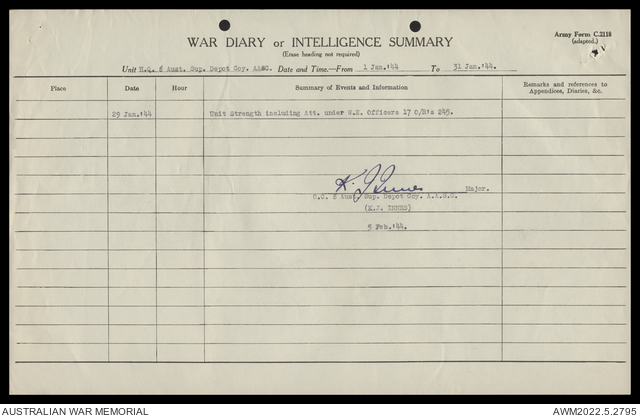 Army Form C.2118
(adapted.)
WAR DIARY or INTELLIGENCE SUMMARY
(Erase heading not required)
Unit H.Q. 8 Aust. Sup. Depot Coy. AASC. Date and Time.—From 1 Jan.'44 To 31 Jan.'44.
Place Date Hour Summary of Events and Information Remarks and references to Appendices, Diaries, &c.
29 Jan.'44 Unit Strength including Att. under W.E. Officers 17 O/R's 245.
Major.
O.C. 8 Aust. Sup. Depot Coy. A.A.S.C.
(K.J. INNES)
5 Feb.'44.
AUSTRALIAN WAR MEMORIAL AWM2022.5.2795